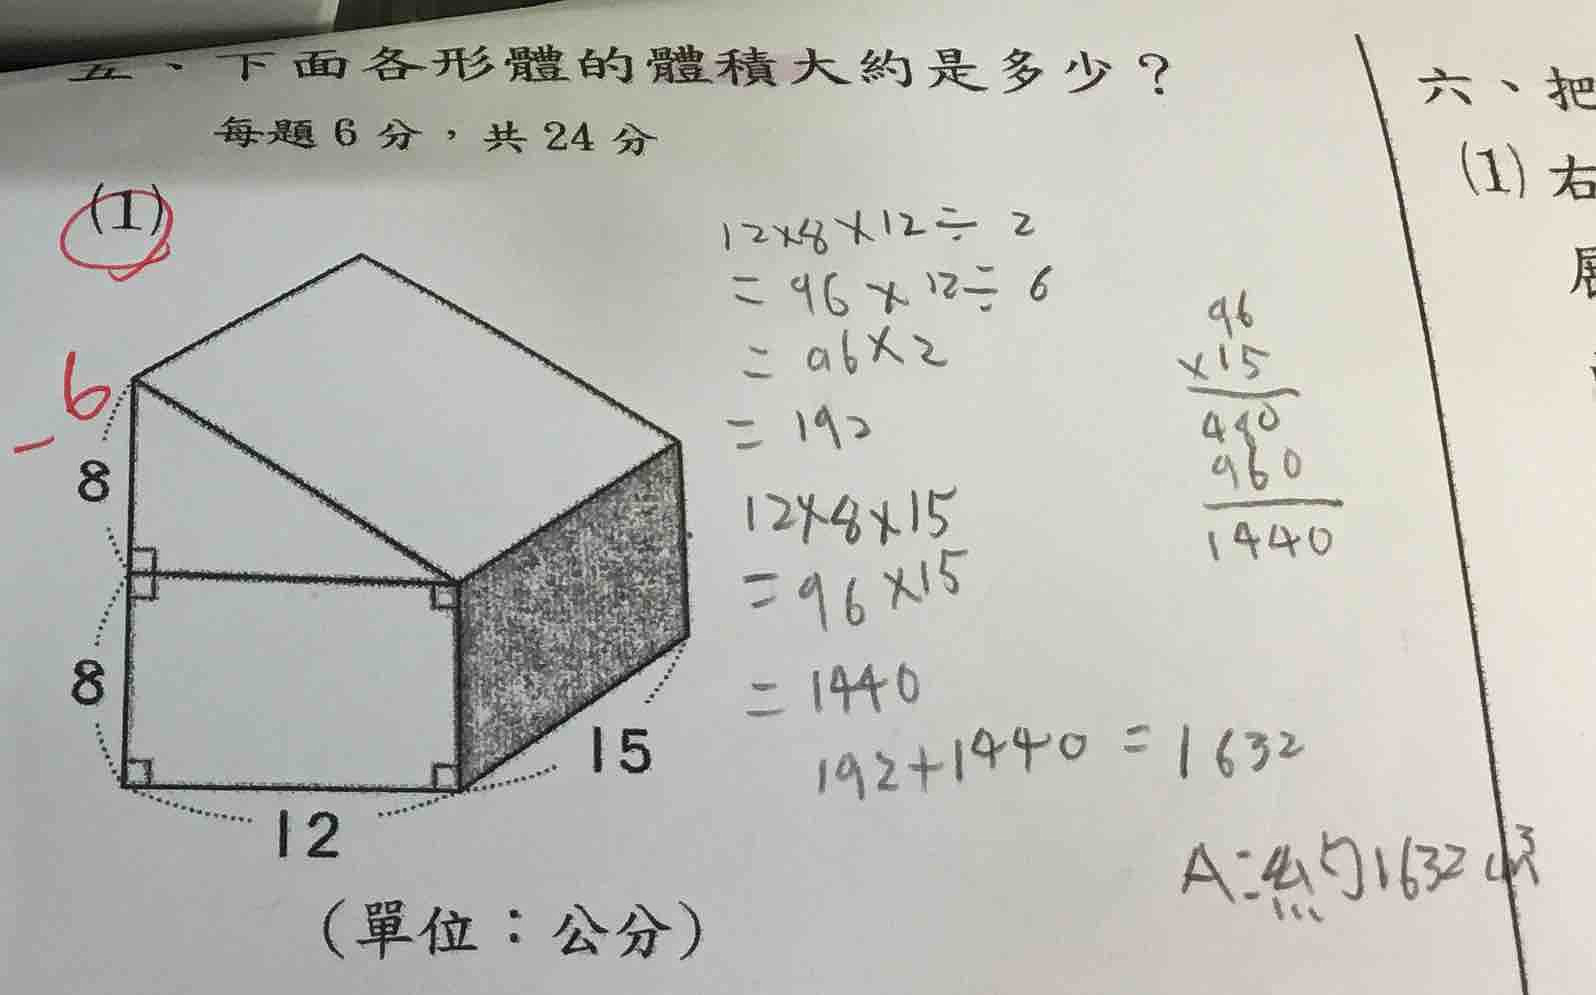 五、下面各形體的體積大約是多少?
每題6分,共24分
(1)
-6
8
8
12
15
(單位:公分)
12×8×12÷2
=96×12÷6
=96×2
=192
12×8×15
=96×15
=1440
192+1440=1632
A:約1632
96
×15
480
960
1440
六、把
(1)右